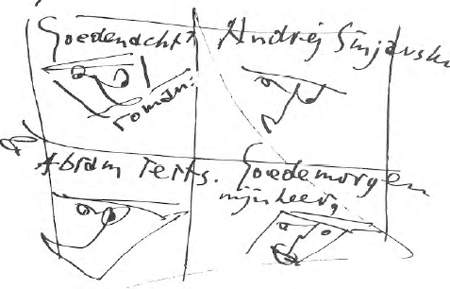 Goedenacht!
Andrej Sinjavski
roman:
Abram Terts.
Goedemorgen
mijnheer,